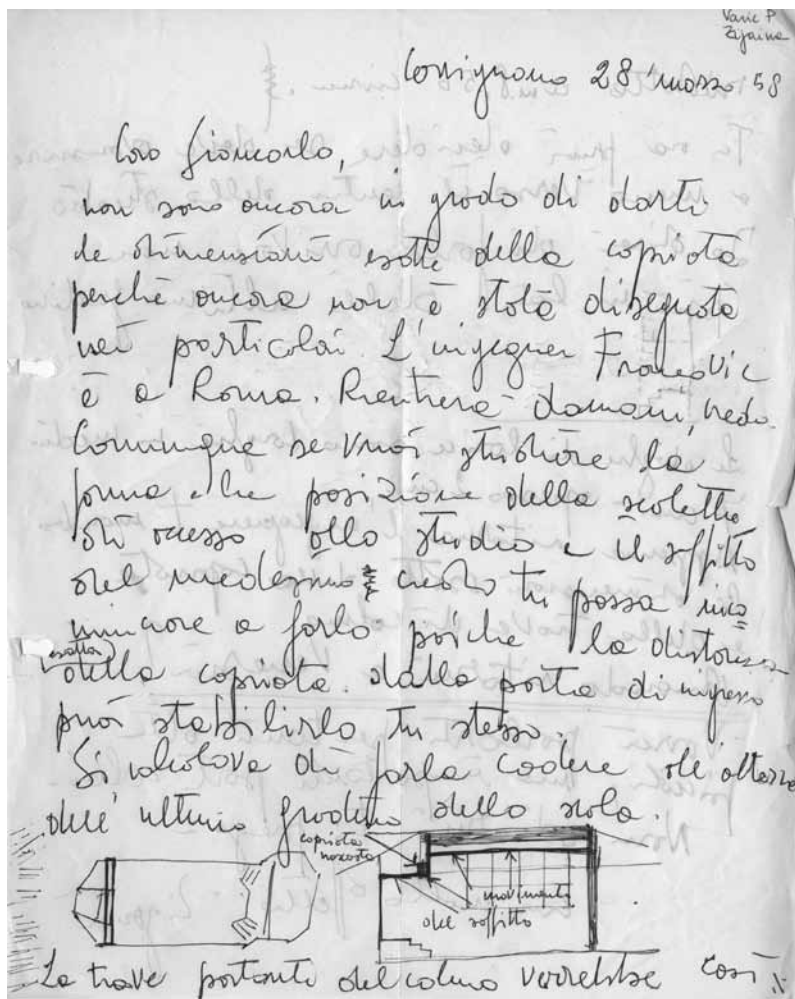 Varie P.
Zigaina
28 marzo 58
Caro Giancarlo,
non sono ancora in grado di darti
le dimensioni esatte della capriata
perchè ancora non è stata disegnata
nei particolari. L'ingegner Francovic
è a Roma. Rientrerà domani, credo.
Comunque se vuoi studiare la
forma e la posizione della scaletta
di accesso allo studio e il soffitto
del medesimo credo tu possa inco
minciare a farlo poichè la distanza
esatta
della capriata dalla porta di ingresso
puoi stabilirla tu stesso.
Si calcolava di farla cadere all'altezza
dell'ultimo gradino della scala.
capriata
nascosta
movimento
del soffitto
La trave portante del colmo verrebbe così: